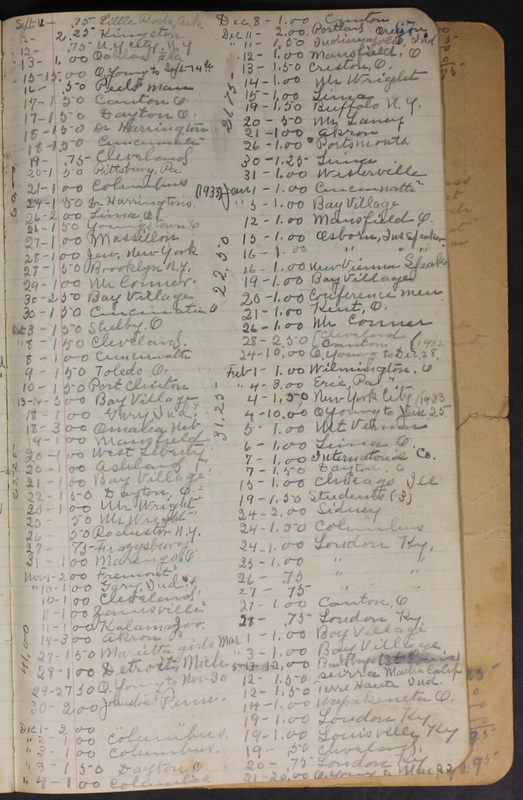 Sept 12 - .75 Little Rock, Ark
12 - 2.25 Kingston
12 - .75 N.Y. City, N.Y
13 - 1.00
15 - 15.00 O. Young to Sept 14th
16 - .50 Peels Man
17 - 1.50 Canton O
17 - 1.50 Dayton O.
18 - 1.50 Dr Harrington
18 - 1.50 Cincinnati
19 - .75 Cleveland
20 - 1.50 Pittsburg, Pa
21 - 1.00 Columbus
24 - 1.50 Dr Harringtons
26 - 2.00 Lima, O.
26 - 1.50 Youngstown O
27 - 1.00 Massillon
28 - 1.00 Jew. New York
27 - 1.50 Brooklyn N.Y.
29 - 1.00 Mr Conner
30 - 2.50 Bay Village
30 - 1.50 Cincinnati O
Oct 3 - 1.50 Shelby, O
" 8 - 1.50 Cleveland
8 - 1.00 Cincinnati
9 - 1.50 Toledo O.
10 - 1.50 Port Clinton
13-16 - 3.00 Bay Village
18 - 1.00 Gary Ind.
18 - 3.00 Omaha Neb
19 - 1.00 Mansfield
20 - 1.00 West Liberty
20 - 1.00 Ashland
21 - 1.00 Bay Village
22 - 1.50 Dayton, O.
23 - 1.00 Mr Wright
25 .50 Mr Wright
26 - .50 Rochester N.Y.
27 - .75 Frazysburg
31 - 1.00 Marengo O
Nov 1 - 2.00 Fremont
" 10 - 1.00 Gary, Ind.
10 - 1.00 Cleveland
11 - 1.00 Zanesville
11 - 1.00 Kalamazoo
14 - 3.00 Akron O
27 - 1.50 Marietta girls
28 - 1.00 Detroit, Mich
29 - 27.50 O. Young to Nov-30
30 - 2.00 Penn.
41.00
Dec 1 - 2.00
" 2 - 1.00 "Columbus.
" 3 - 1.00 Columbus.
" 3 - 1.50 Dayton O
" 4 - 1.00 Columbus
Dec 8 - 1.00 Canton
Dec 11 - 2.00 Portland Oregon
" 11 - 1.50 Indianapolis, Ind
12 - 1.00 Mansfield, O
13 - 1.50 Creston, O.
14 - 1.00 Mr Wright
15 - 1.00 Lima
19 - 1.50 Buffalo N.Y.
20 - .50 Mr Laney
21 - 1.00 Akron
26 - 1.00 Portsmouth
30 - 1.25 Lima
31 - 1.00 Westerville
21.75 -
(1933) Jan 1 - 1.00 Cincinnati
" 5 - 1.00 Bay Village
12 - 1.00 Mansfield O.
15 - 1.00 Osborn, Ins Speaker
16 - 1.00 " "
16 - 1.00 New Vienna Speaker
19 - 1.00 Bay Village
20 - 1.00 Conference Men
21 - 1.00 Kent, O.
26 - 1.00 Mr Conner
28 - 2.50 (Cleveland Canton
24 - 10.00 O. Young to Dec 28, 1932
22.50
Feb 1 - 1.00 Wilmington, O
" 4 - 3.00 Erie, Pa
4 - 1.50 New York City 1933
4 - 10.00 O Young to Jan 25
5 - 1.00 Mt Vernon
6 - 1.00 Lima O.
7 - 1.00 International Co.
7 - 1.50 Dayton, O
15 - 1.00 Chicago Ill
19 - 1.50 Students (3)
24 - 2.00 Sidney
24 - 1.50 Columbus
24 - 1.00 London Ky.
25 - 1.00 " "
26 - .75 " "
27 - .75 " "
27 - 1.00 Canton, O
28 - .75 London Ky
31.25 -
Mar 1 - 1.00 Bay Village
" 3 - 1.00 Bay Village
5-13 - 12.00
12 - 1.50 Sierra Madre Calif
12 - 1.50 Terre Haute Ind.
14 - 1.00 Wapakoneta O.
19 - 1.00 London Ky
19 - 1.00 Louisville Ky
19 - .50 Cleveland,
20 - .75 London Ky
21 - 20.00 O. Young to Mar 22